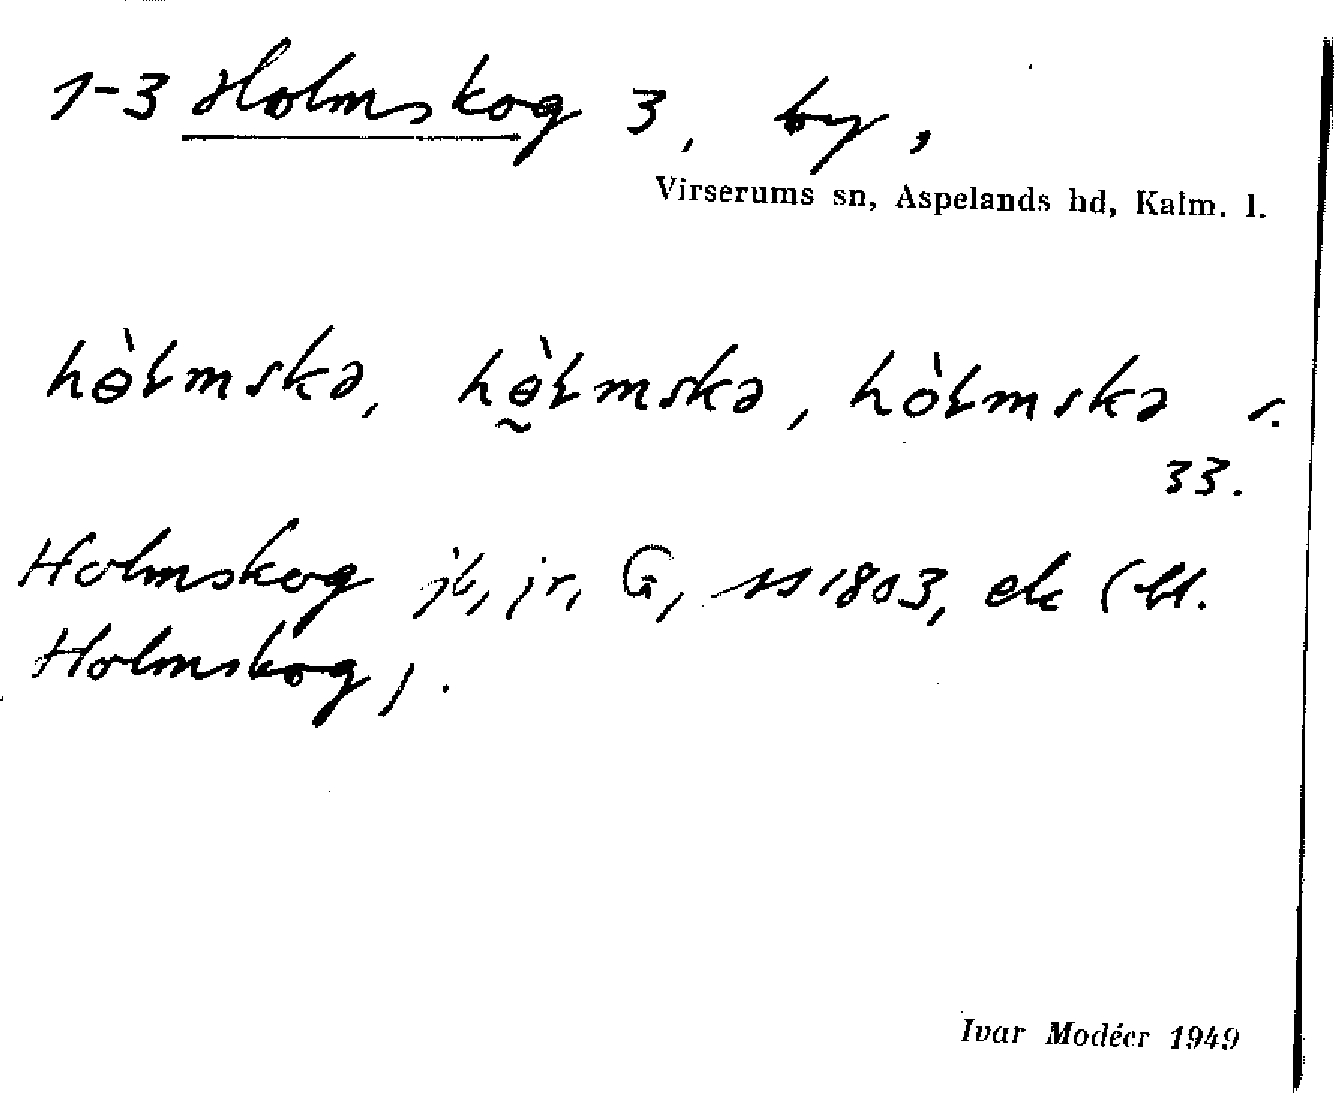 1-3 Holmskog 3, by,
Virserums sn, Aspelands hd, Kalm. l.
hɵ̀Lmskə, hɵ̰̀Lmskə, hòLmskə s.
33.
Holmskog jb, jr, G, 1803, ek (bl.
Holmskog).
Ivar Modéer 1949